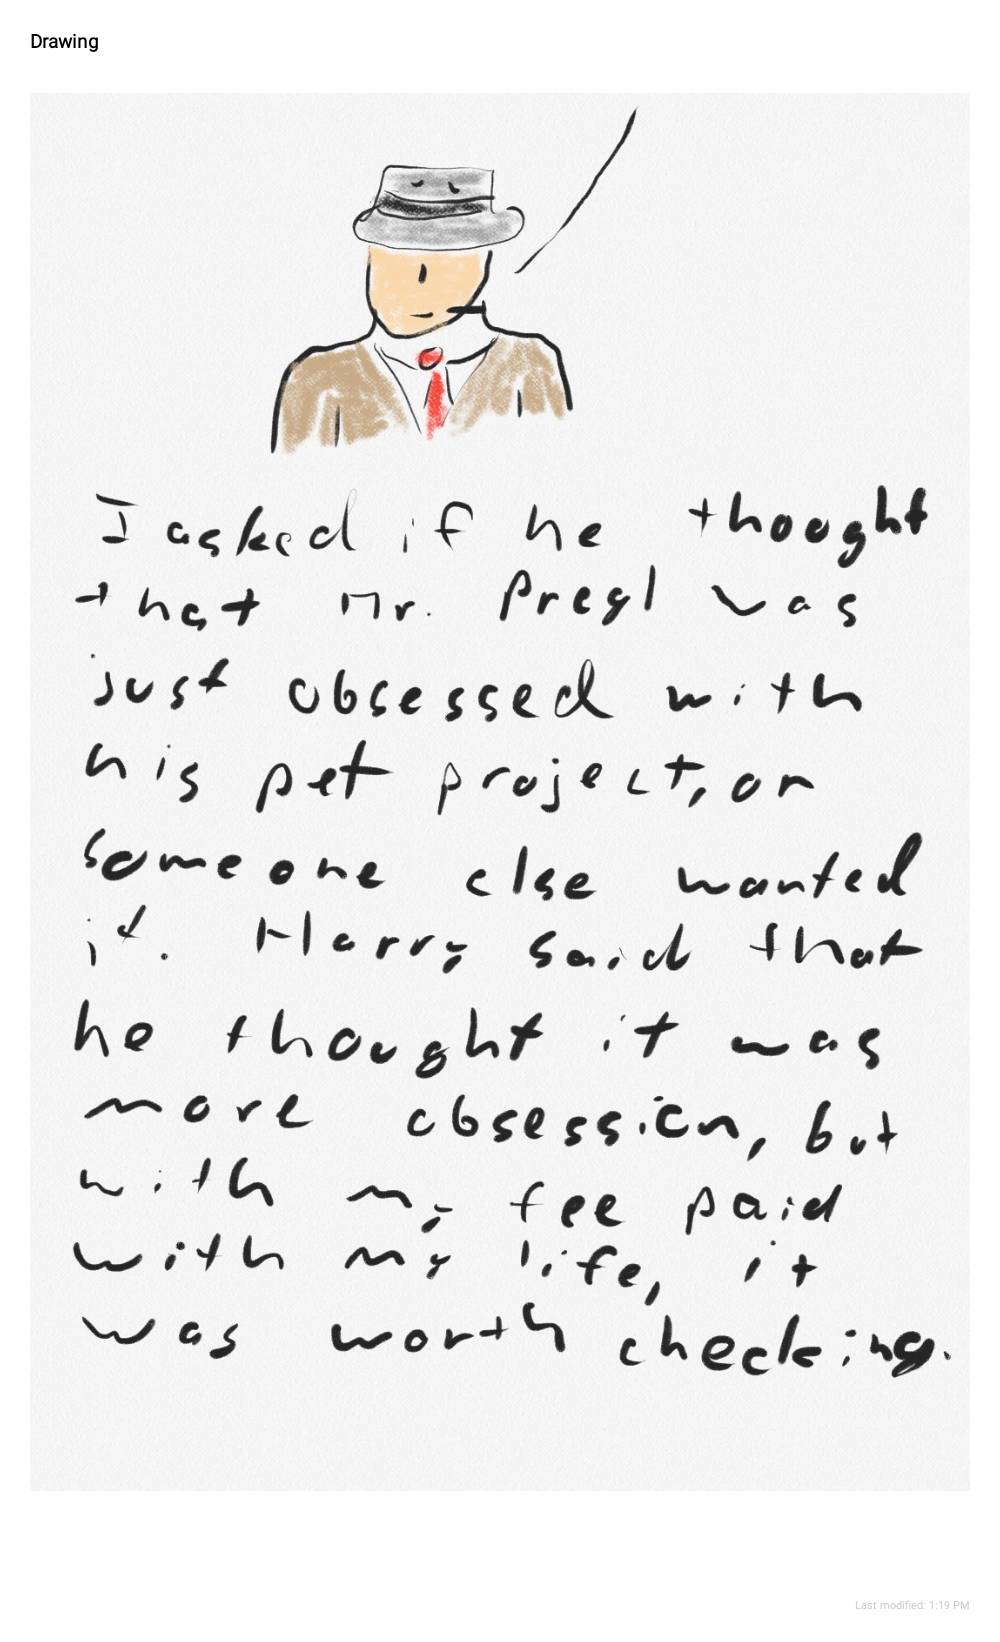 Drawing
I asked if he thought
that Mr. Pregl was
just obsessed with
his pet project, or
someone else wanted
it. Harry said that
he thought it was
more obsession, but
with my fee paid
with my life, it
was worth checking.
Last modified: 1:19 PM